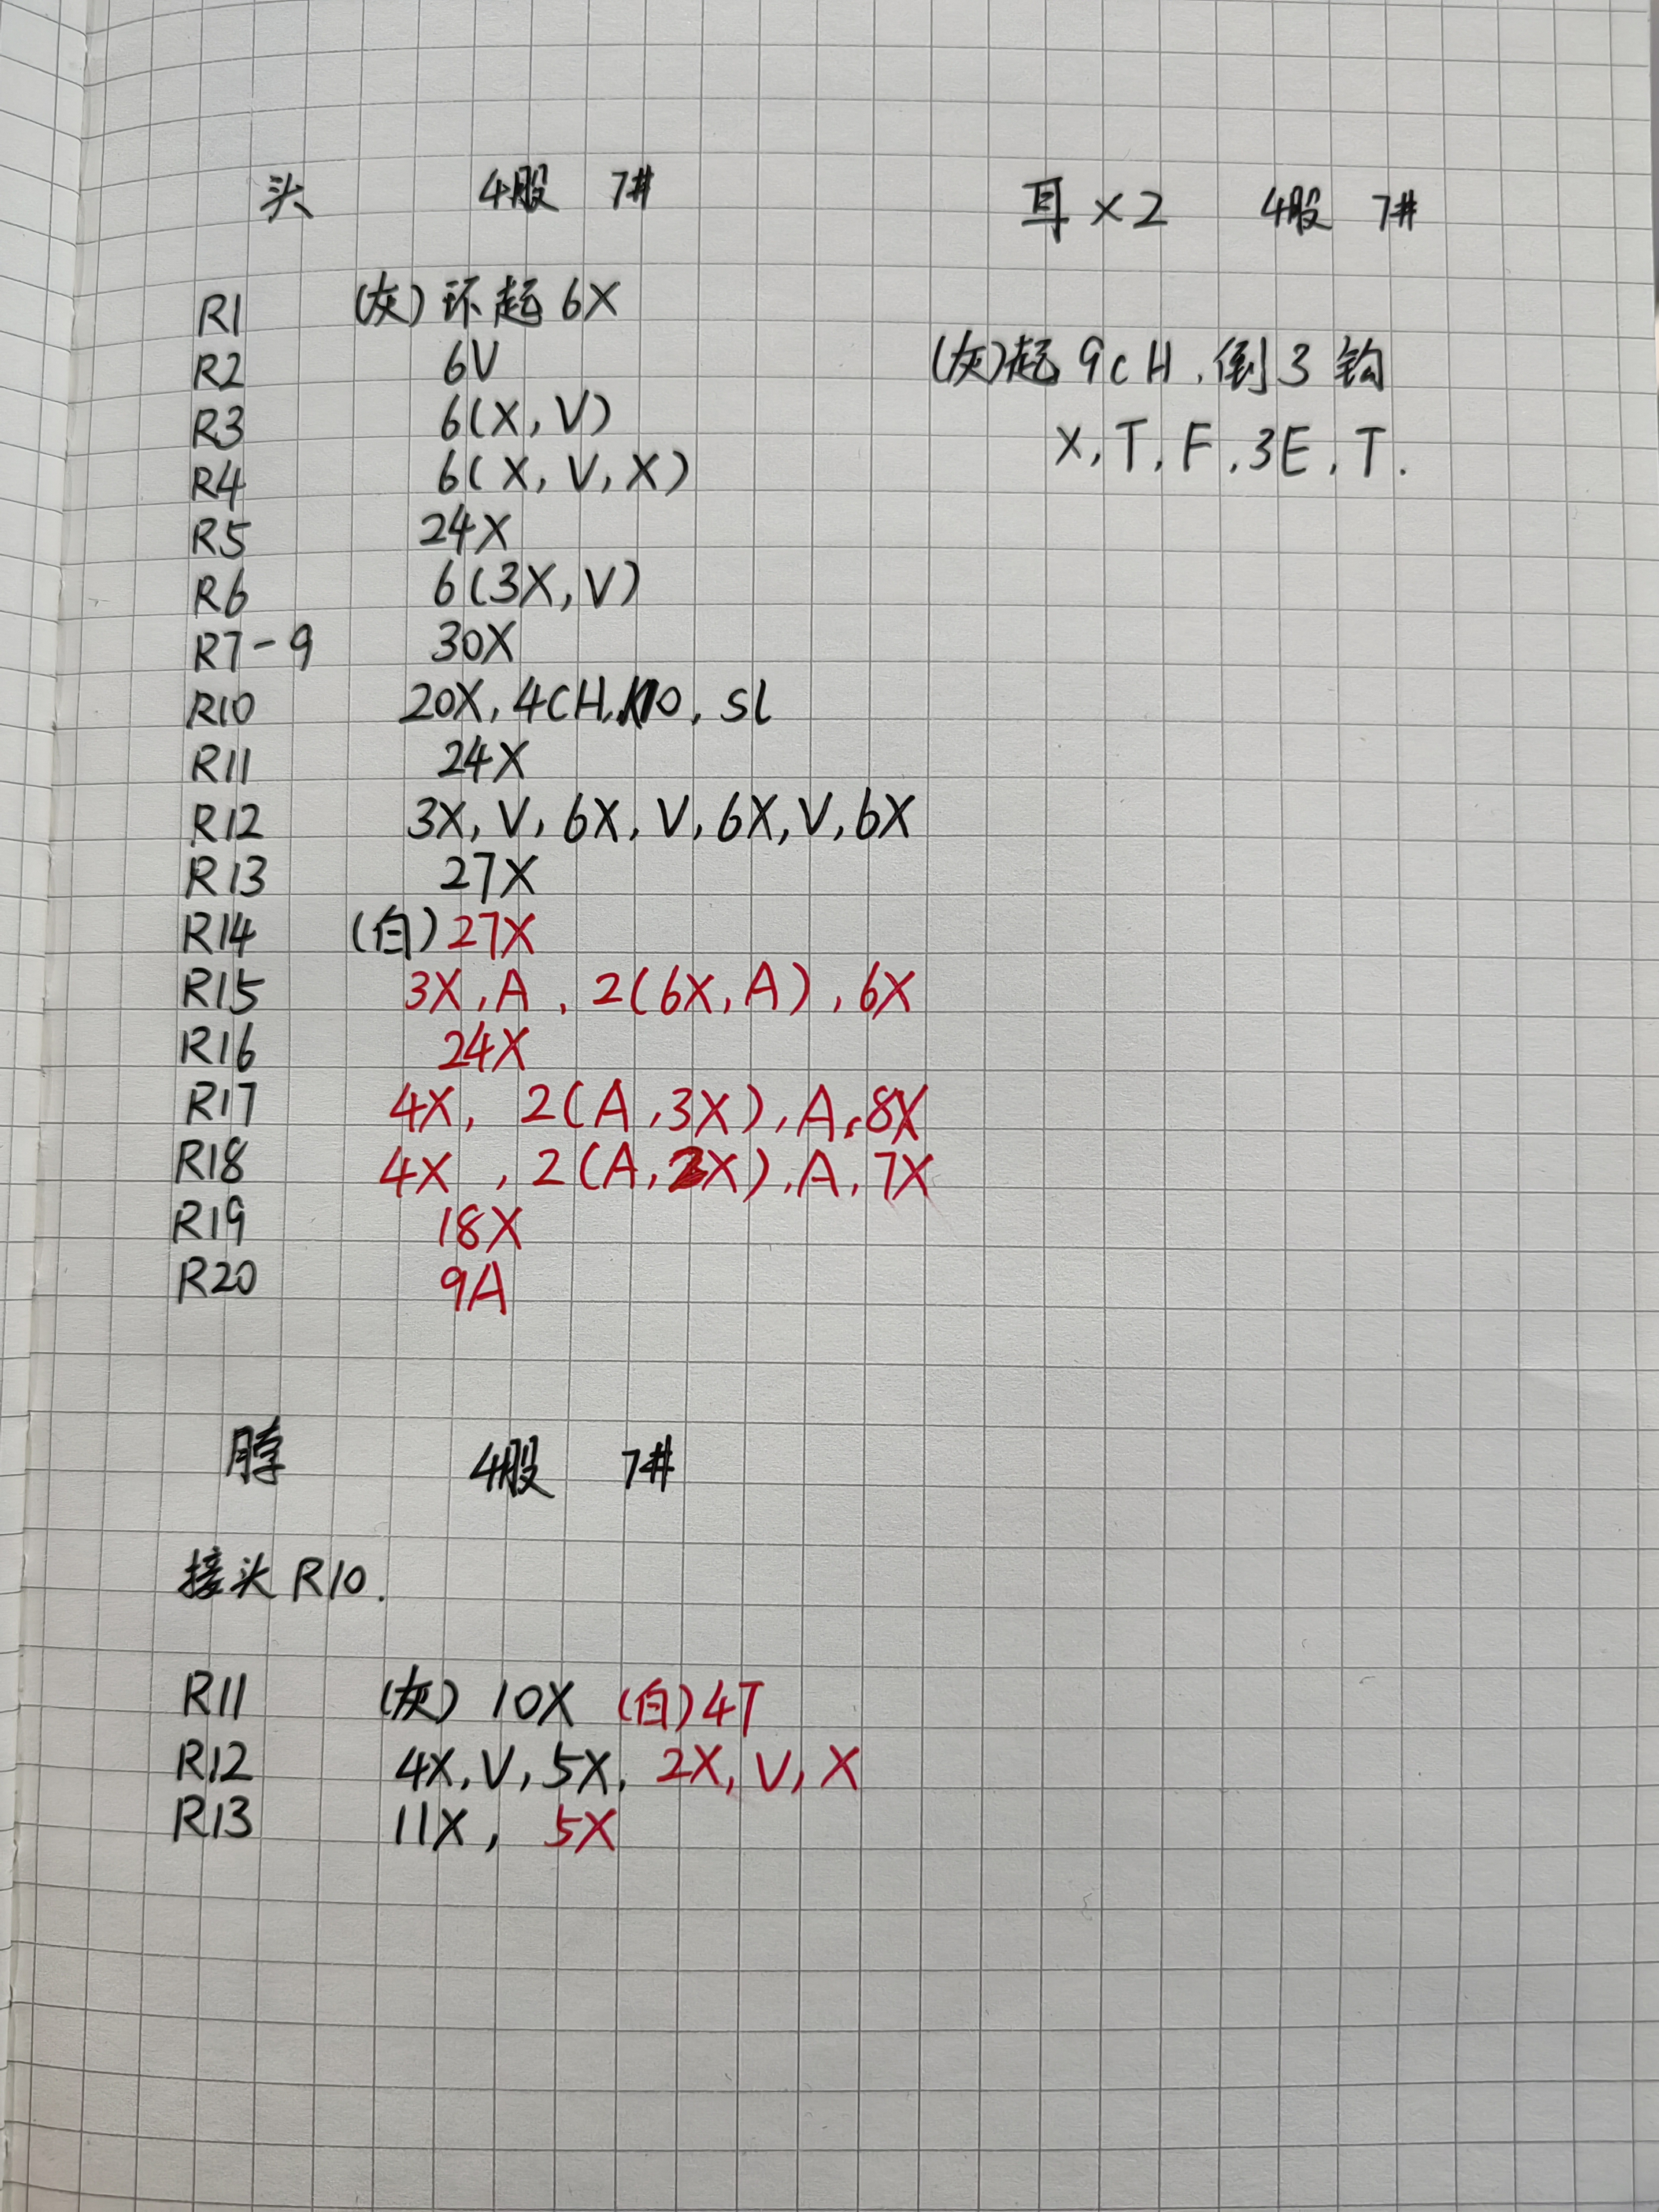 头 4股 7#
R1 (灰)环起6X
R2 6V
R3 6(X,V)
R4 6(X,V,X)
R5 24X
R6 6(3X,V)
R7-9 30X
R10 20X,4CH,10,sl
R11 24X
R12 3X,V,6X,V,6X,V,6X
R13 27X
R14 (白)27X
R15 3X,A,2(6X,A),6X
R16 24X
R17 4X,2(A,3X),A,8X
R18 4X,2(A,2X),A,7X
R19 18X
R20 9A
耳×2 4股 7#
(灰)起9cH,倒3钩
X,T,F,3E,T.
脖 4股 7#
接头R10.
R11 (灰)10X (白)4T
R12 4X,V,5X,2X,V,X
R13 11X,5X